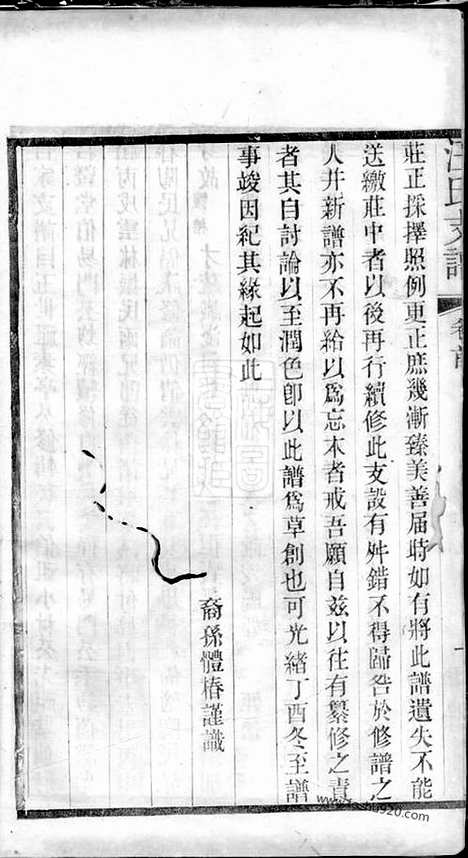 汪氏支譜 卷首
莊正採擇照例更正庶幾漸臻美善屆時如有將此譜遺失不能
送繳莊中者以後再行續修此支設有舛錯不得歸咎於修譜之
人并新譜亦不再給以爲忘本者戒吾願自兹以往有纂修之責
者其自討論以至潤色卽以此譜爲草創也可光緒丁酉冬至譜
事竣因紀其緣起如此
裔孫體椿謹識